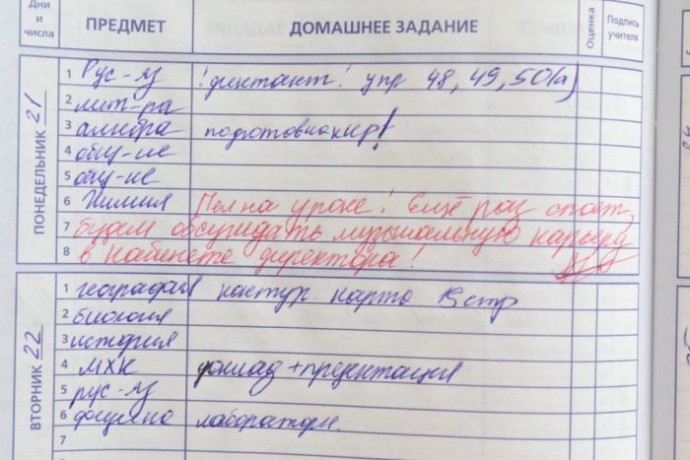 Дни и числа ПРЕДМЕТ ДОМАШНЕЕ ЗАДАНИЕ Оценка Подпись учителя
ПОНЕДЕЛЬНИК 21
1 Рус-яз !диктант! упр 48, 49, 50(а)
2 лит-ра
3 алгебра подготовка к кр!
4 общ-ие
5 общ-ие
6 Химия Пел на уроке! Ещё раз споёт,
7 будем обсуждать музыкальную карьеру
8 в кабинете директора!
ВТОРНИК 22
1 география контур. карта
2 биология
3 история
4 МХК доклад+презентация
5 рус-яз
6 физика лаборатор.
7
8